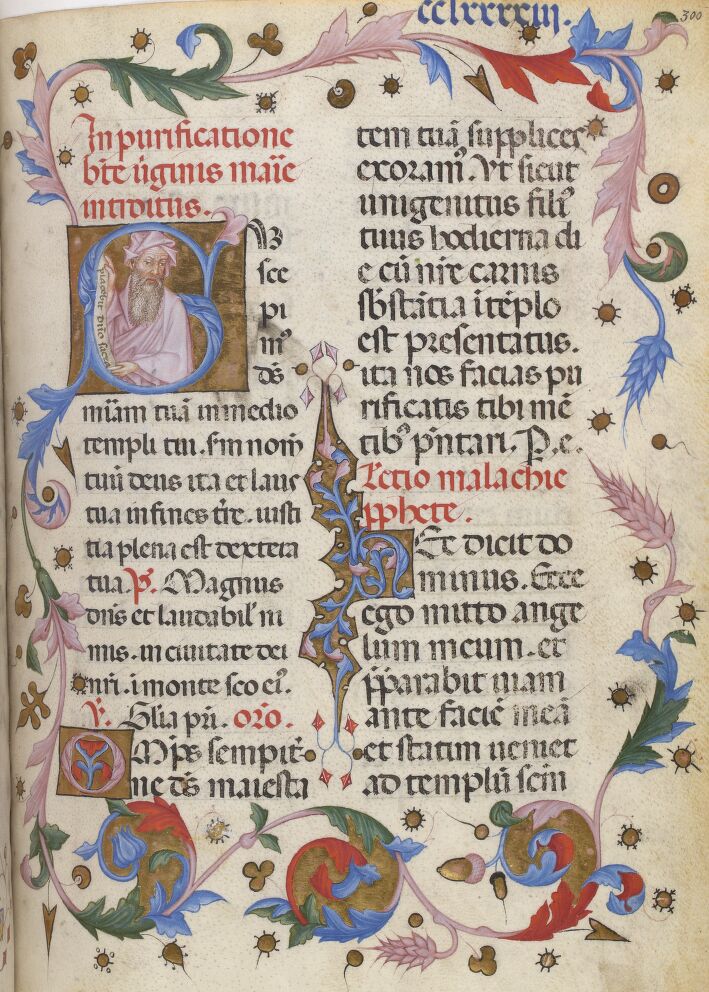 cclxxxxiii.
300
In purificatione
bte ūginis maīe
introitus.
SV
sce
pi
m⁹
ds̄
mīam tuā in medio
templi tui. sm nom̄
tuū deus ita et laus
tua in fines tr̄e. iusti
tia plena est dextera
tua. P. Magnus
dn̄s et laudabil' ni
mis. in ciuitate dei
nr̄i. i monte sc̄o ei⁹.
V. Gl̄ia pr̄i. or̄o.
OMp̄s sempit̄
ne ds̄ maiesta
tem tuā supplices
exoram⁹. Vt sicut
unigenitus fili⁹
tuus hodierna di
e cū nr̄e carnis
sb̄stātia ī tēplo
est presentatus.
ita nos facias pu
rificatis tibi mē
tib⁹ pn̄tari. P. e.
Lectio malachie
pphete.
HEc dicit do
minus. Ecce
ego mitto ange
lum meum. et
pparabit uiam
ante faciē meā
et statim ueniet
ad templū scm̄